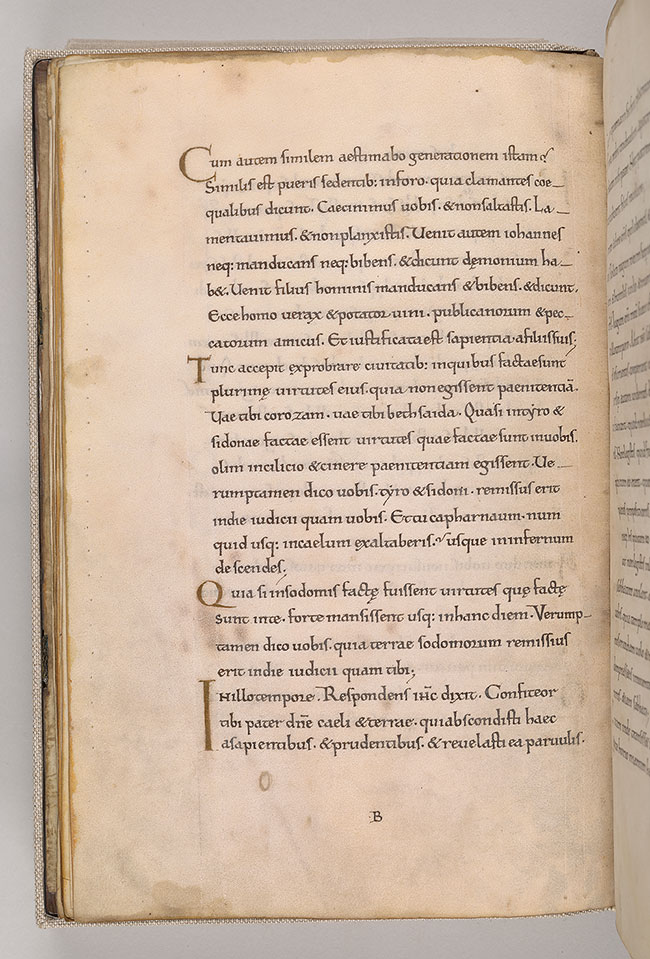 Cum autem similem aestimabo generationem istam?
Similis est pueris sedentib: inforo. quia clamantes coe_
qualibus dicunt. Caecinimus uobis. &nonsaltastis. La_
mentauimus. &nonplanxistis. Uenit autem iohannes
neq: manducans neq: bibens. &dicunt dęmonium ha_
b&. Uenit filius hominis manducans &bibens. &dicunt.
Ecce homo uerax &potator uini. publicanorum &pec_
catorum amicus. Et iustificata est sapientia afiliissuis;
Tunc accepit exprobrare ciuitatib: inquibus factaesunt
plurimę uirtutes eius. quia non egissent paenitentiā.
Uae tibi corozam. uae tibi bethsaida. Quasi intyro &
sidonae factae essent uirtutes quae factae sunt inuobis.
olim incilicio &cinere paenitentiam egissent. Ue_
rumptamen dico uobis. tyro &sidoni. remissus erit
indie iudicii quam uobis. Et tu capharnaum. num
quid usq: incaelum exaltaberis? usque in infernum
descendes;
Quia si insodomis factę fuissent uirtutes quę factę
sunt inte. forte mansissent usq: inhanc diem. Verump_
tamen dico uobis. quia terrae sodomorum remissius
erit indie iudicii quam tibi;
INillotempore. Respondens ih̄c dixit. Confiteor
tibi pater dn̄e caeli &terrae. quiabscondisti haec
asapientibus. &prudentibus. &reuelasti ea paruulis.
B